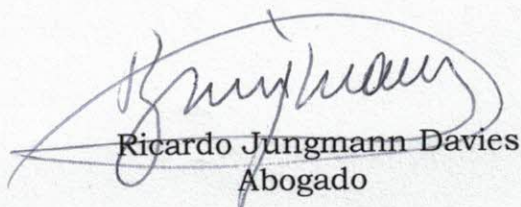 Ricardo Jungmann Davies
Abogado